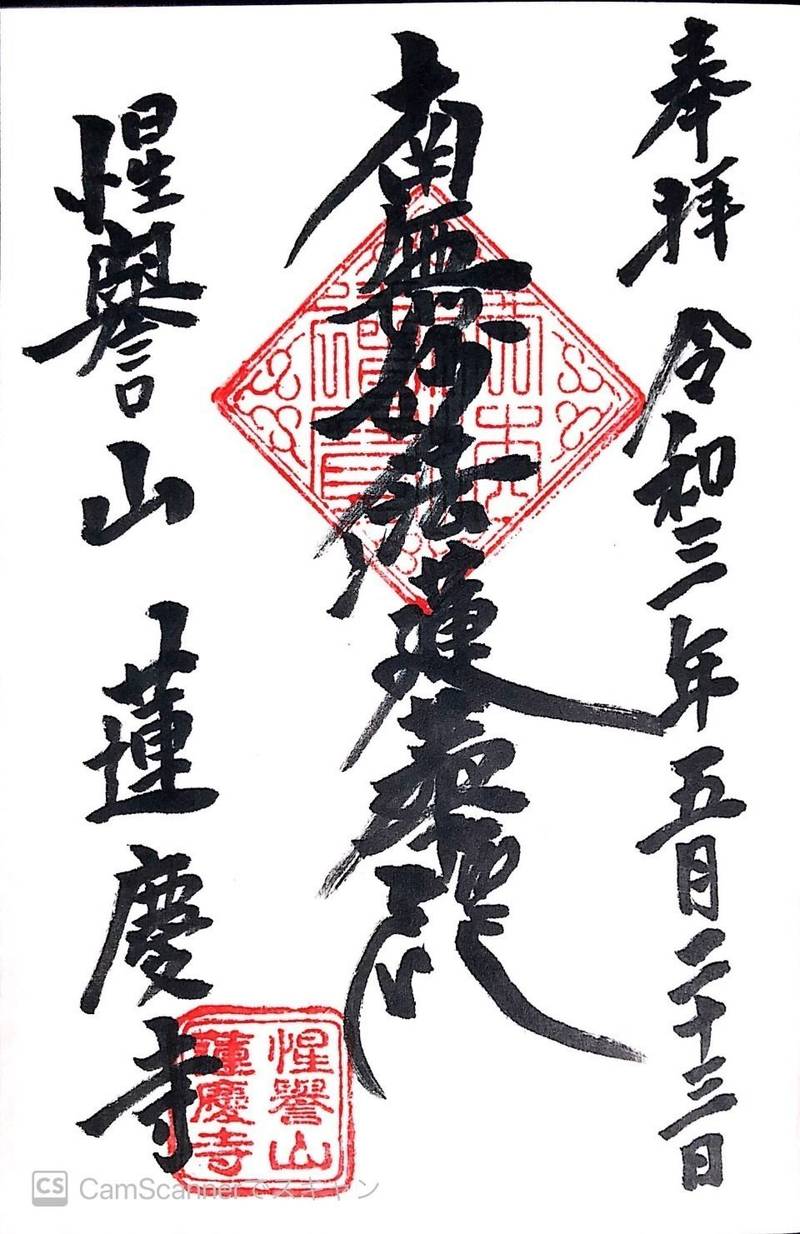 奉拝 令和三年五月二十三日
南無妙法蓮華経
惺譽山 蓮慶寺
惺譽山
蓮慶寺
CS CamScannerでスキャン